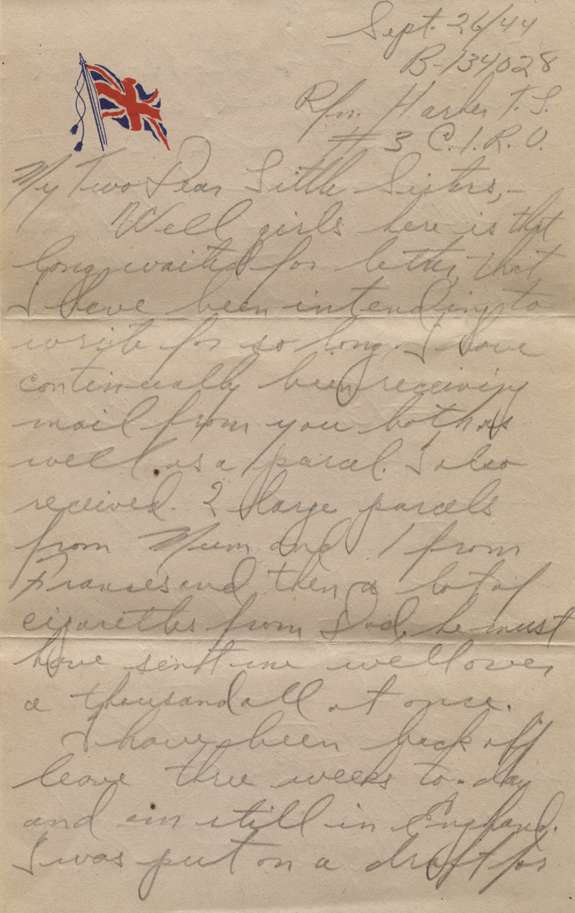 Sept. 26/44
B-134028
Rfn. Harber T. S.
#3 C.I.R.U.
My Two Dear Little Sisters,-
Well girls here is that
long waited for letter, that
I have been intending to
write for so long. I have
continually been receiving
mail from you both as
well as a parcel. I also
received 2 large parcels
from Mum and 1 from
Franses and then a lot of
cigarettes from Dad, he must
have sent me well over
a thousand all at once.
I have been back off
leave three weeks to-day
and am still in England.
I was put on a draft for